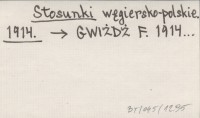 Stosunki węgiersko-polskie.
1914. → GWIŻDŻ F. 1914...
BY/095/1295